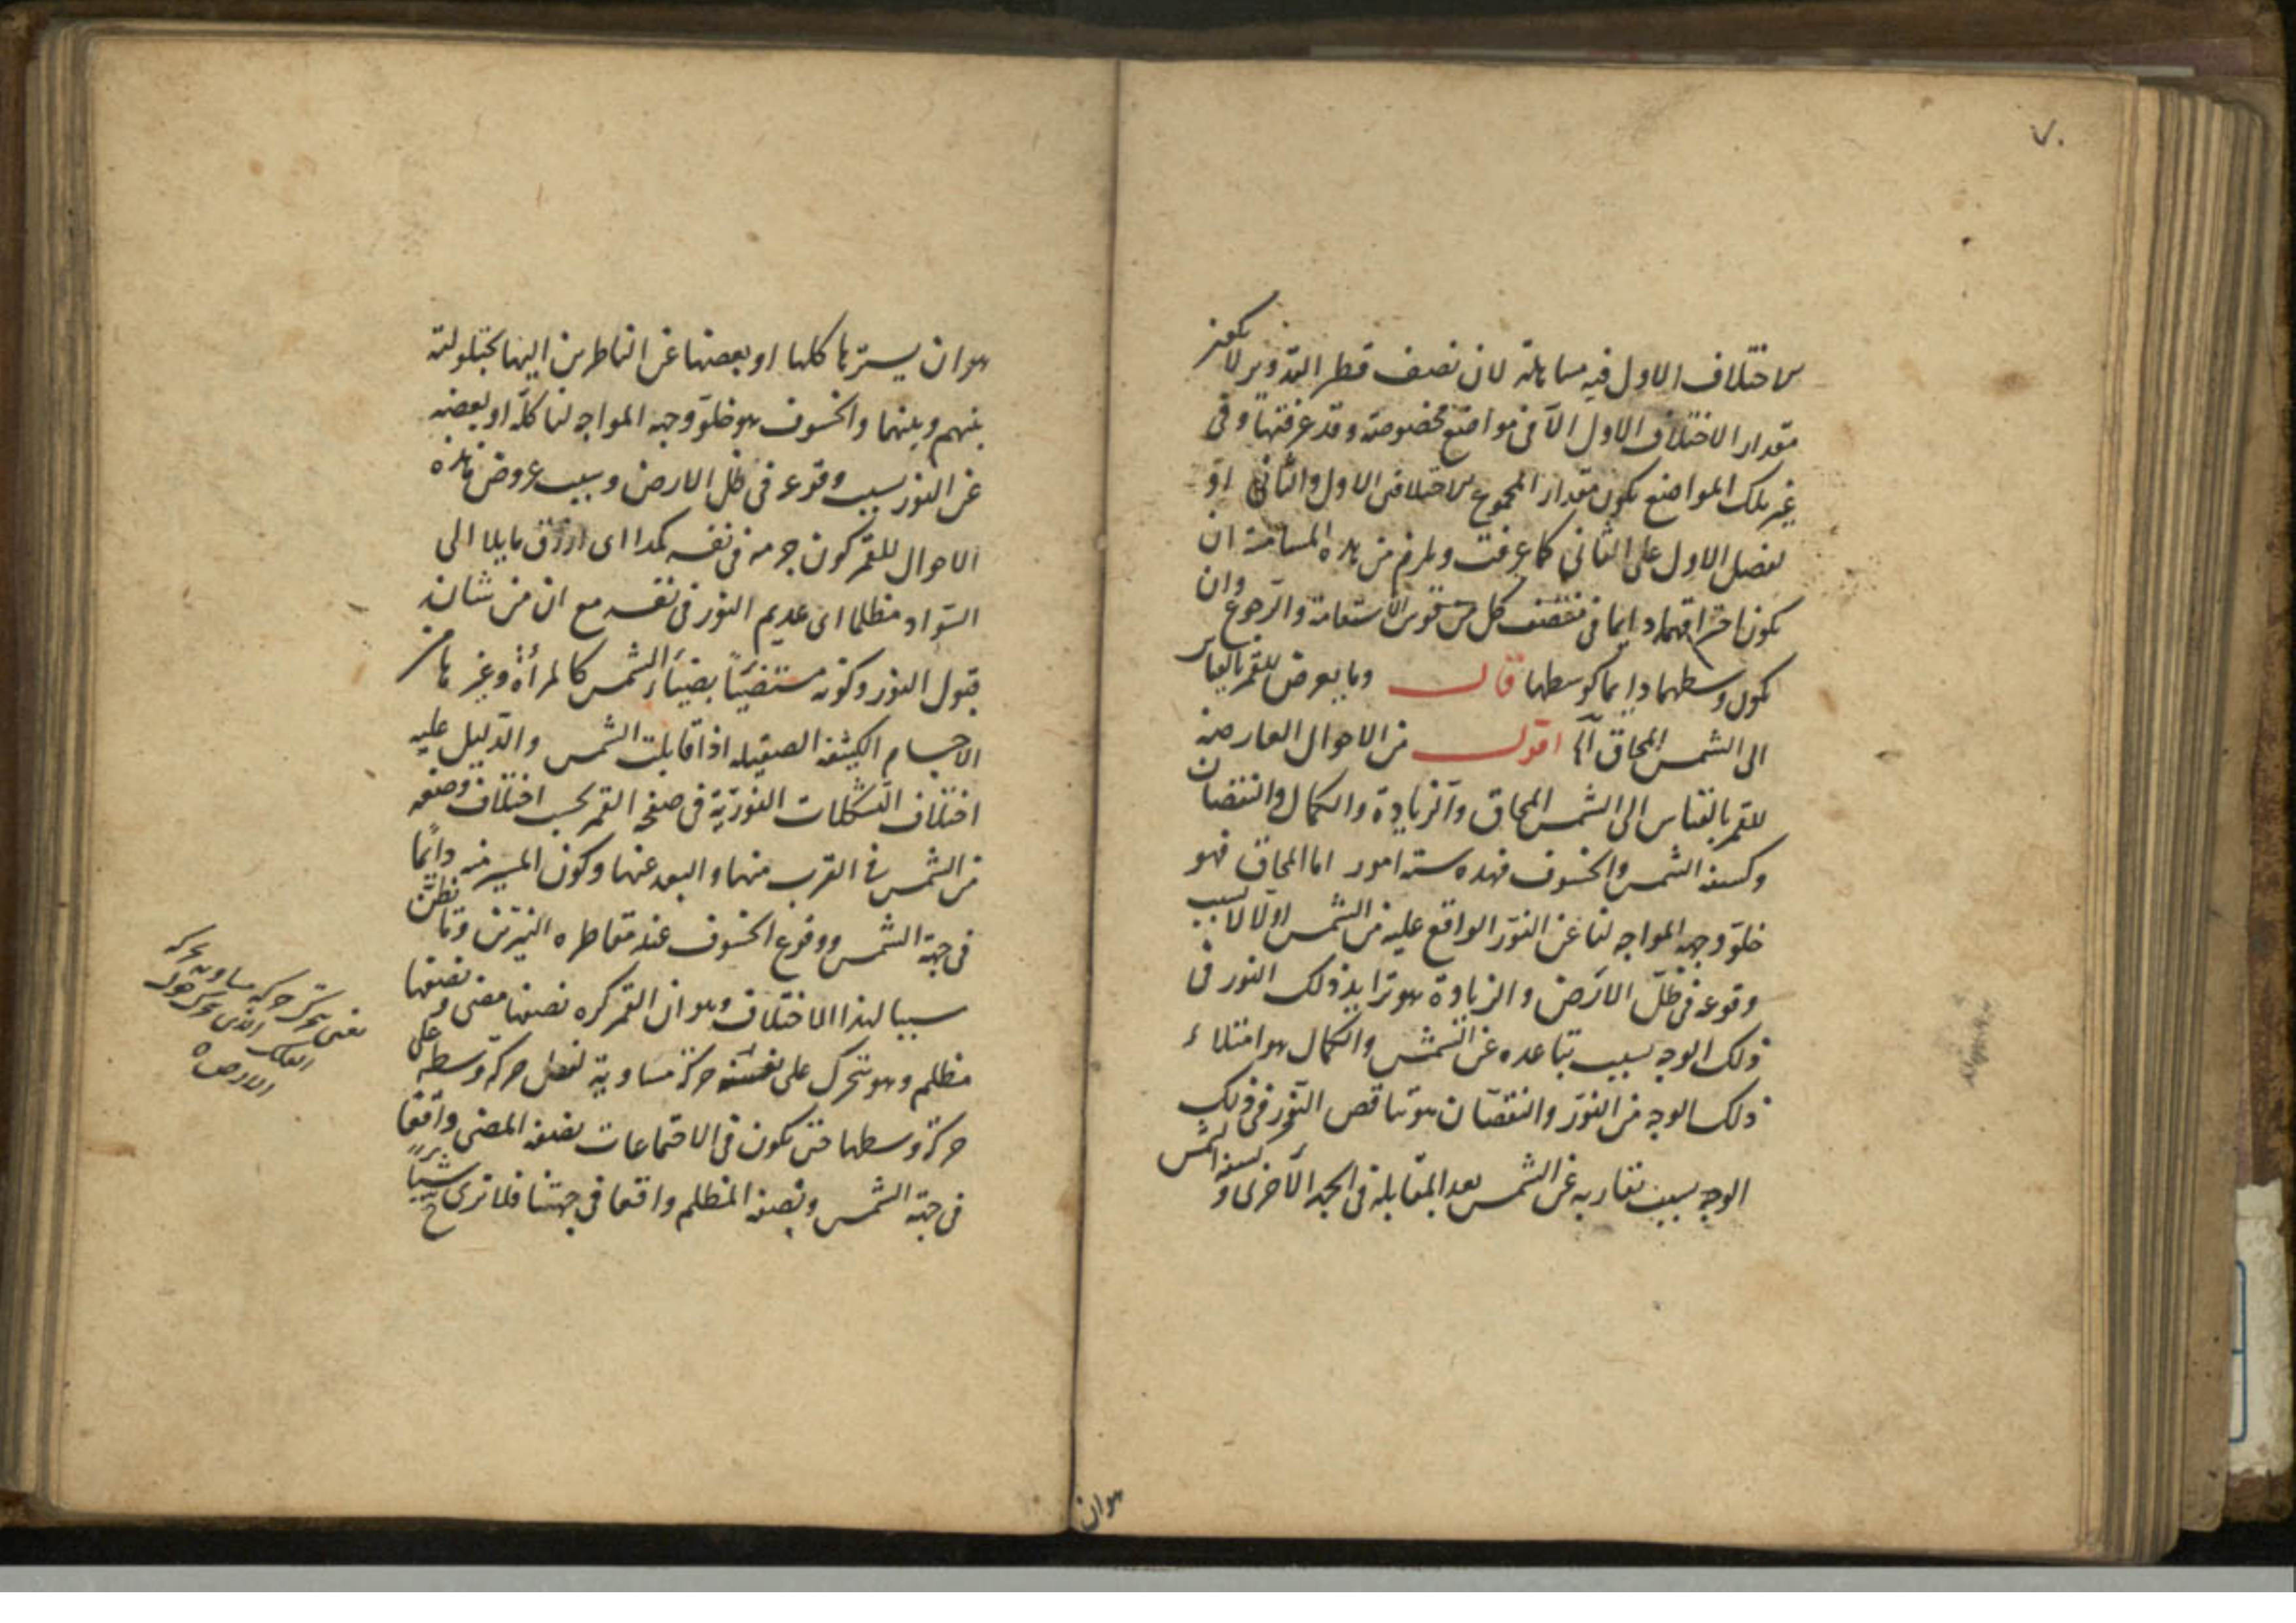 ٧٠
الاختلاف الاول فيه مساهلة لان نصف قطر التدوير لا يكون
مقدار الاختلاف الاول الا فى مواضع مخصوصة وقد عرفتها وفى
غير تلك المواضع يكون مقدار المجموع الاختلافين الاول والثانى او
لفضل الاول على الثانى كما عرفت ويلزم من هذه المسامتة ان
يكون احتراقهما دايما فى منتصف كل من قوس الاستقامة والرجوع وان
يكون وسطهما دايما كوسطها قال ومما يعرض للقمر بالقياس
الى الشمس المحاق آه اقول من الاحوال العارضة
للقمر بالقياس الى الشمس المحاق والزيادة والكمال والنقصان
وكسفه الشمس والخسوف فهذه ستة امور اما المحاق فهو
خلوّ وجهه المواجه لنا عن النور الواقع عليه من الشمس اولا لا بسبب
وقوعه فى ظلّ الارض والزيادة هو تزايد ذلك النور فى
ذلك الوجه بسبب تباعده عن الشمس والكمال هو امتلاء
ذلك الوجه من النور والنقصان هو تناقص النور فى ذلك
الوجه بسبب تقاربه عن الشمس بعد المقابلة فى الجهة الاخرى وكسفه الشمس
هو ان
هو ان يسترها كلها او بعضها عن الناظرين اليها بحيلولته
بينهم وبينها والخسوف هو خلوّ وجهه المواجه لنا كلّه او بعضه
عن النور بسبب وقوعه فى ظل الارض وسبب عروض هذه
الاحوال للقمر كون جرمه فى نفسه كمدا اى ازرق مايلا الى
السّواد مظلما اى عديم النور فى نفسه مع ان من شانه
قبول النور وكونه مستضيئاً بضياء الشمس كالمرأة وغيرها من
الاجسام الكثيفة الصقيلة اذا قابلت الشمس والدليل عليه
اختلاف التشكلات النورية فى صفحة القمر بحسب اختلاف وضعه
من الشمس فى القرب منها والبعد عنها وكون المنير منه دايمًا
فى جهة الشمس ووقوع الخسوف عند مقاطره النيرين وما يظنّ
سببا لهذا الاختلاف وهو ان القمر كره نصفها مضى ونصفها
مظلم وهو يتحرك على نفسه حركة مساوية لفضل حركة وسطه على
حركة وسطها حتى يكون فى الاجتماعات نصفه المضى واقفا
فى جهة الشمس ونصفه المظلم واقعا فى جهتنا فلا نرى شيئاً
يعنى يتحرك حركه مساويه بحركه
الفلك الذى مركزه حول
الارض